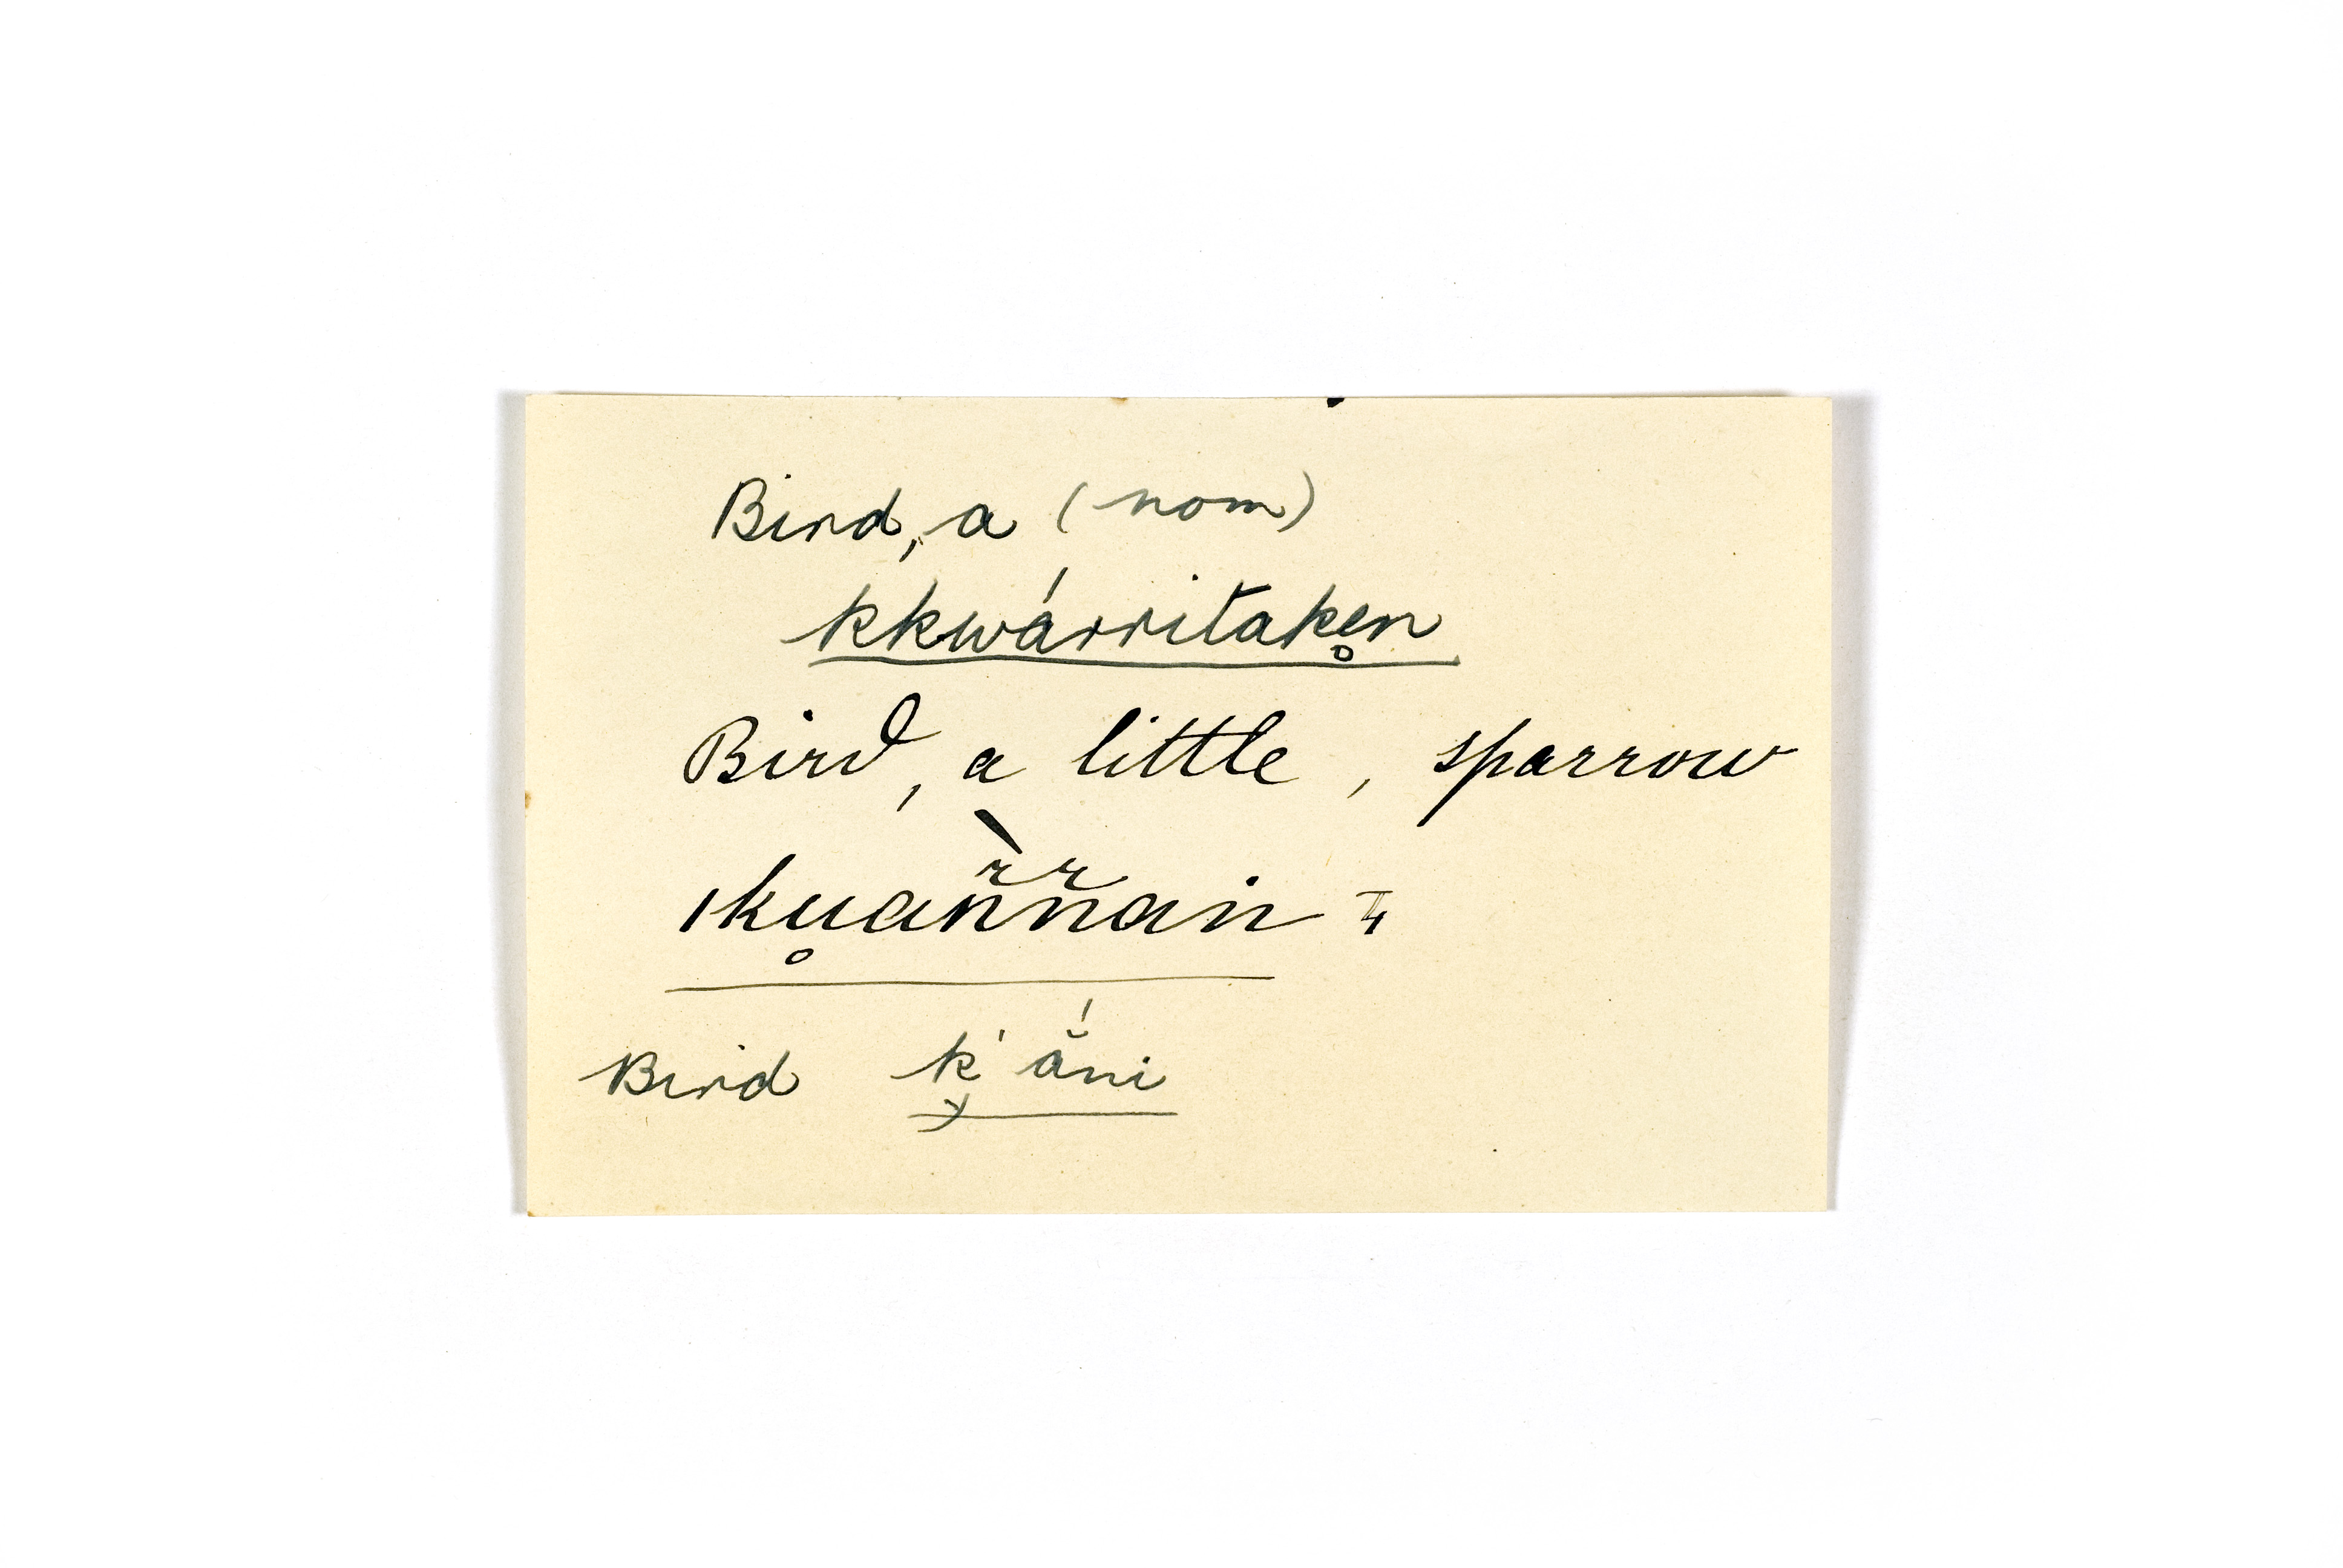 Bird, a (nom)
kkwárritaken̥
Bird, a little, sparrow
ǀku̥ařřan
Bird k' ắni